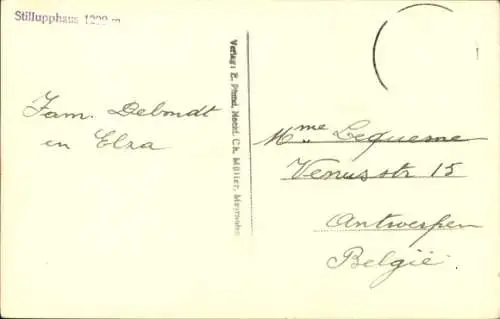 Stillupphaus 1200 m
Fam. Debondt
en Elza
Verlag: E. Pfund, Nachf. Ch. Müller, Mayrhofen
Mme Lequeme
Venusstr 15
Antwerpen
België